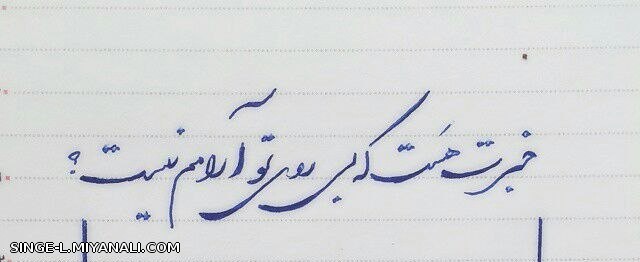 خبرت هست که بی روی تو آرامم نیست؟
SINGE-L.MIYANALI.COM